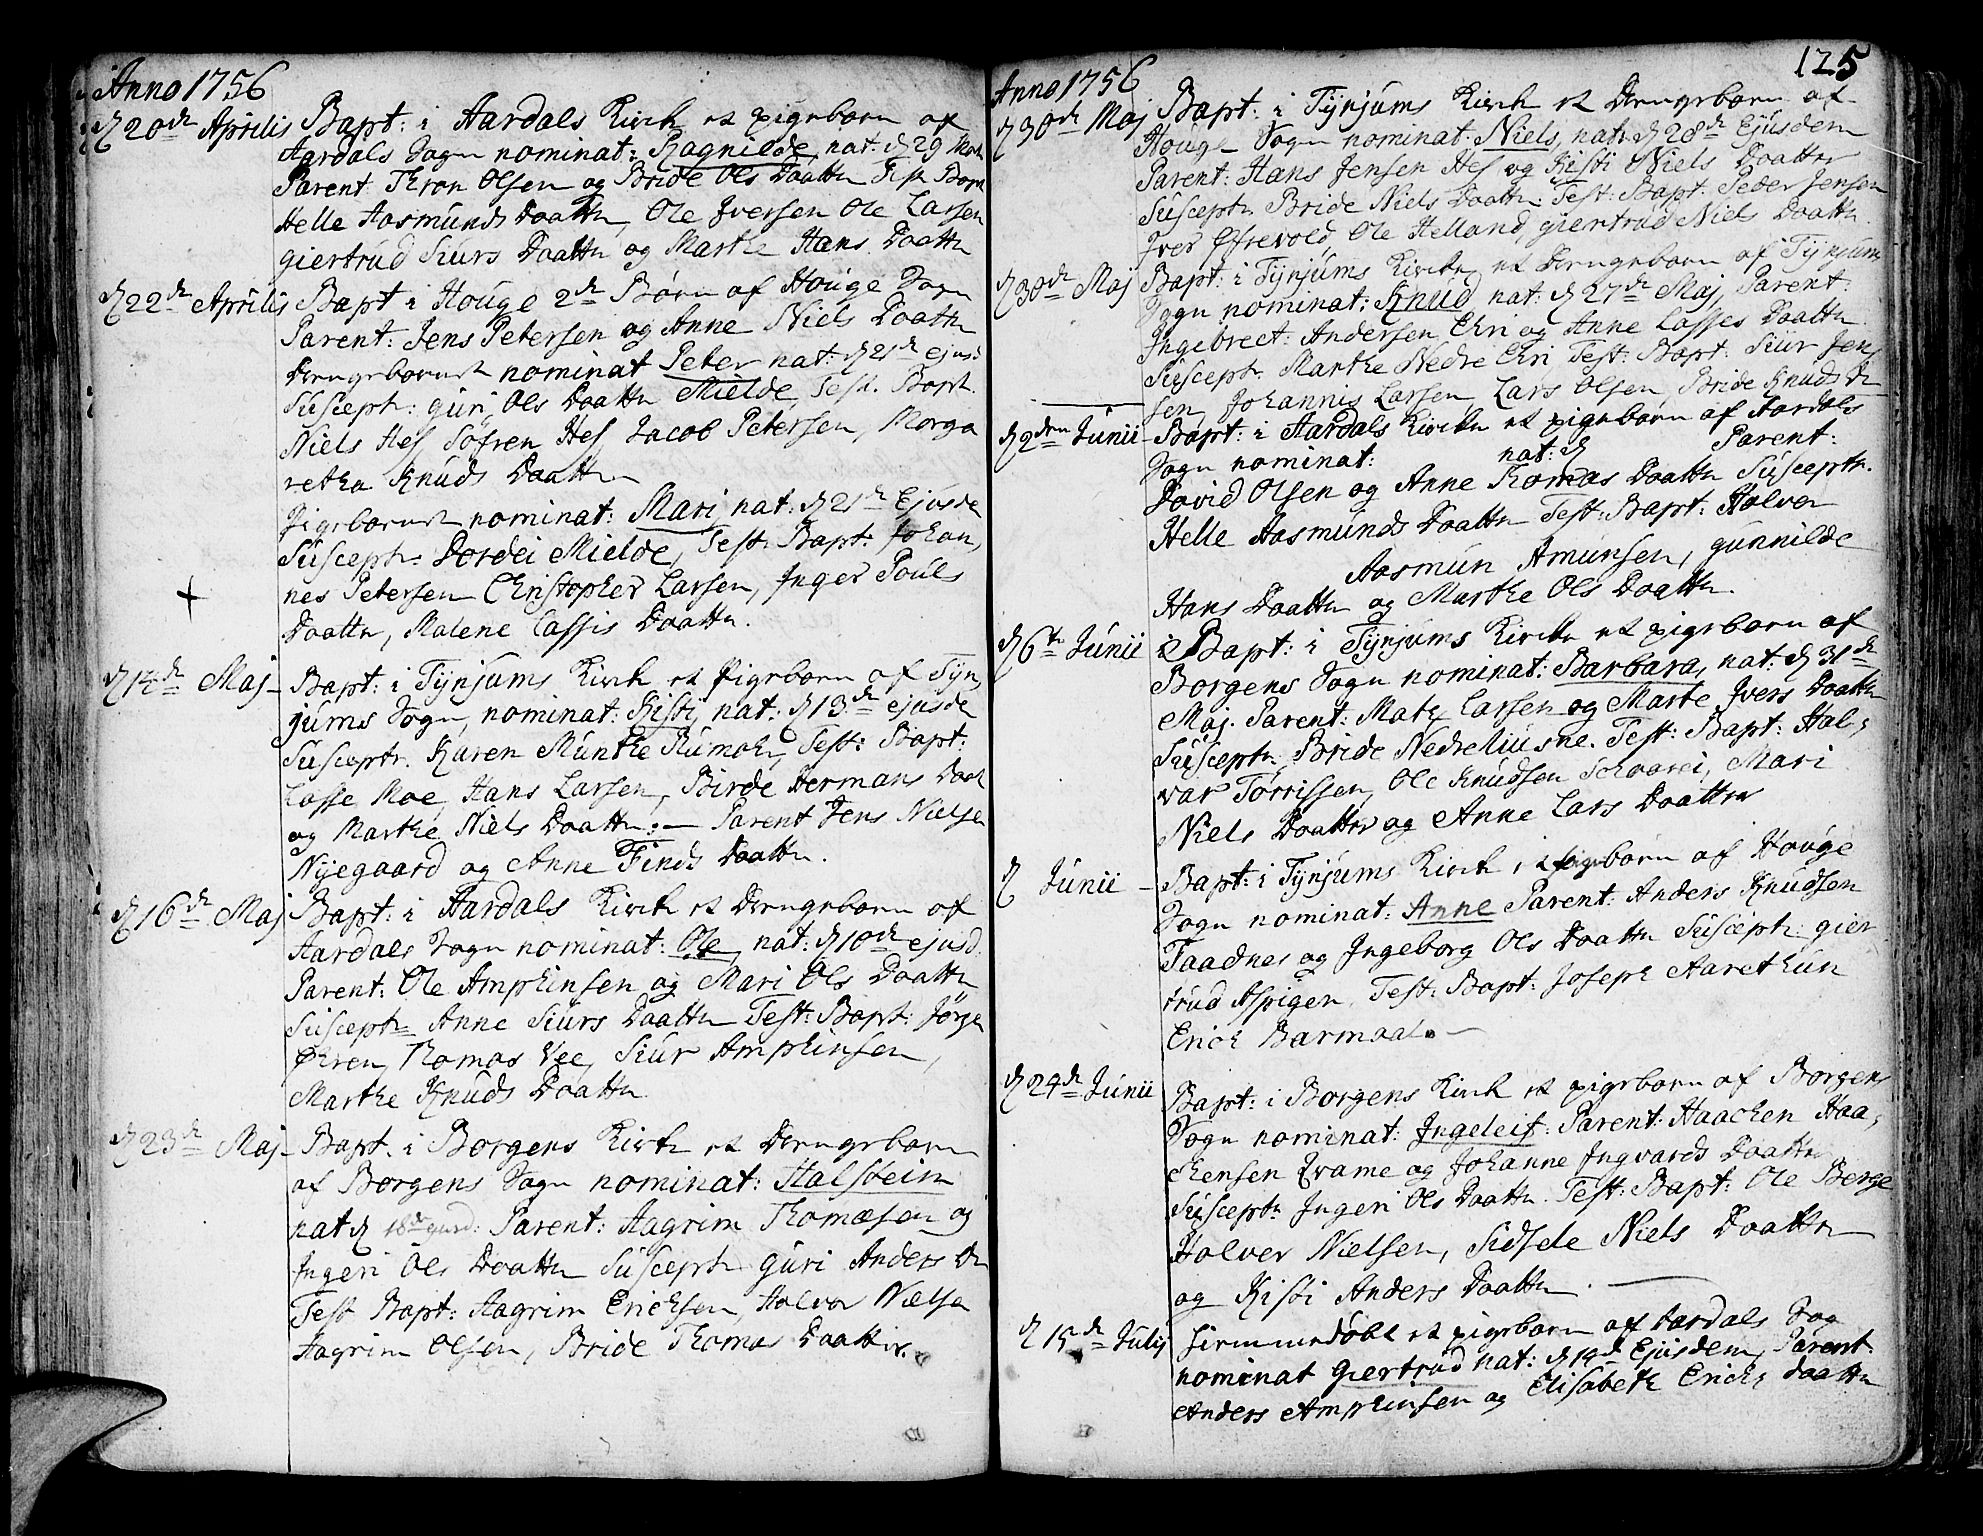 Anno 1756
d 20de Aprilis Bapt: i Aardals Kirke et pigebarn af
Aardals Sogn nominat: Ragnilde, nat: d 29 Mart
Parent: Thron Olsen og Bride Ols Daatter Test Bapt
Helle Aasmunds Daatter, Ole Iversen Ole Larsen
giertrud Siurs Daatter og Marthe Hans Daatter
d 22de Aprilis Bapt i Houge 2de Børn af Houge Sogn
Parent: Jens Petersen og Anne Niels Daatter
Drengebarnet nominat Peter nat: d 21de ejusd:
Suscept: guri Ols Daatter Mielde, Test. Bapt.
Niels Hes Søfren Hes Jacob Petersen, Marga
retha Knuds Daatter
Pigebarnet nominat: Mari nat: d 21de Ejusde
Suscept: Dordei Mielde, Test: Bapt: Johan,
nes Petersen Christopher Larsen, Inger Pouls
Daatter, Malene Lassis Daatter.
+
d 14de Maj - Bapt: i Tynjums Kirke et Pigebarn af Tyn,
jums Sogn, nominat: Kisti, nat: d 13de ejusde
Suscept: Karen Munthe Rumohr, Test: Bapt:
Lasse Moe, Hans Larsen, Birde Hermans Daat
og Marthe Niels Daatter: - Parent Jens Nielse
Nyegaard og Anne Finds Daatter.
d 16de Maj Bapt: i Aardals Kirke et Drengebarn af
Aardals Sogn nominat: Ole, nat: d 10de ejusd
Parent: Ole Amphinsen og Mari Ols Daatter
Suscept: Anne Siurs Daatter Test: Bapt: Jørge
Øren, Thomas Vee, Siur Amphinsen,
Marthe Knuds Daatter
d 23de Maj - Bapt. i Borgens Kirke et Drengebarn
af Borgens Sogn nominat: Halstein
nat d 18de Parent: Aagrim Thomæsen og
Ingeri Ols Daatter Suscept: guri Anders Dr
Test Bapt: Aagrim Erichsen, Halvor Nielse
Aagrim Olsen, Bride Thomas Daatter.
125
Anno 1756
d 30de Maj Bapt: i Tynjums Kirke et Drengebarn af
Houg - Sogn nominat: Niels, nat: d 28de Ejusdem
Parent: Hans Jensen Hes og Kisti Niels Daatter
Suscept: Bride Niels Daatter Test: Bapt: Peder Jensen
Iver Øfrevold, Ole Helland, giertrud Niels Daatter
d 30de Maj Bapt: i Tynjums Kirke, et Drengebarn af Tynjum
Sogn nominat: Knud nat: d 27de Maj, Parent:
Ingebrect Andersen Eri og Anne Lasses Daatter
Suscept: Marthe Nedre Eri Test: Bapt: Siur Jens
sen, Johannis Larsen, Lars Olsen, Bride Knuds Dr
d 2den Junii - Bapt: i Aardals Kirke et pigebarn af Aardals
Sogn nominat: nat: d Parent:
David Olsen og Anne Thomas Daatter Suscept:
Helle Aasmunds Daatter Test: Bapt: Halvor
Aasmun Amunsen, gunnilde
Hans Daatter og Marthe Ols Daatter.
d 6te Junii Bapt: i Tynjums Kirke et pigebarn af
Borgens Sogn nominat: Barbara, nat: d 31de
Maj. Parent: Mats Larsen og Marte Ivers Daatter
Suscept: Bride Nedreliusne. Test: Bapt: Hal,
var Torrissen, Ole Knudsen Schaarei, Mari
Niels Daatter og Anne Lars Daatter
d Junii - Bapt: i Tynjums Kirke et pigebarn af Houge
Sogn nominat: Anne Parent: Anders Knudsen
Taadnes og Ingeborg Ols Daatter Suscept: gier
trud Aspigen, Test: Bapt: Joseph Aarethun
Erich Barmaal. -
d 24de Junii Bapt: i Borgens Kirke et pigebarn af Borgens
Sogn nominat: Ingeleif: Parent: Haachen Haa,
chensen Qvame og Johanne Ingvards Daatter
Suscept: Ingeri Ols Daatter. Test: Bapt: Ole Berge
Halver Nielsen, Sidsele Niels Daatter
og Kisti Anders Daatter. -
d 15de Julij hiemmedøbt et pigebarn af Aardals Sog
nominat giertrud nat: d 14de Ejusdem, Parent
Anders Amphinsen og Elisabeth Erichs Daatter